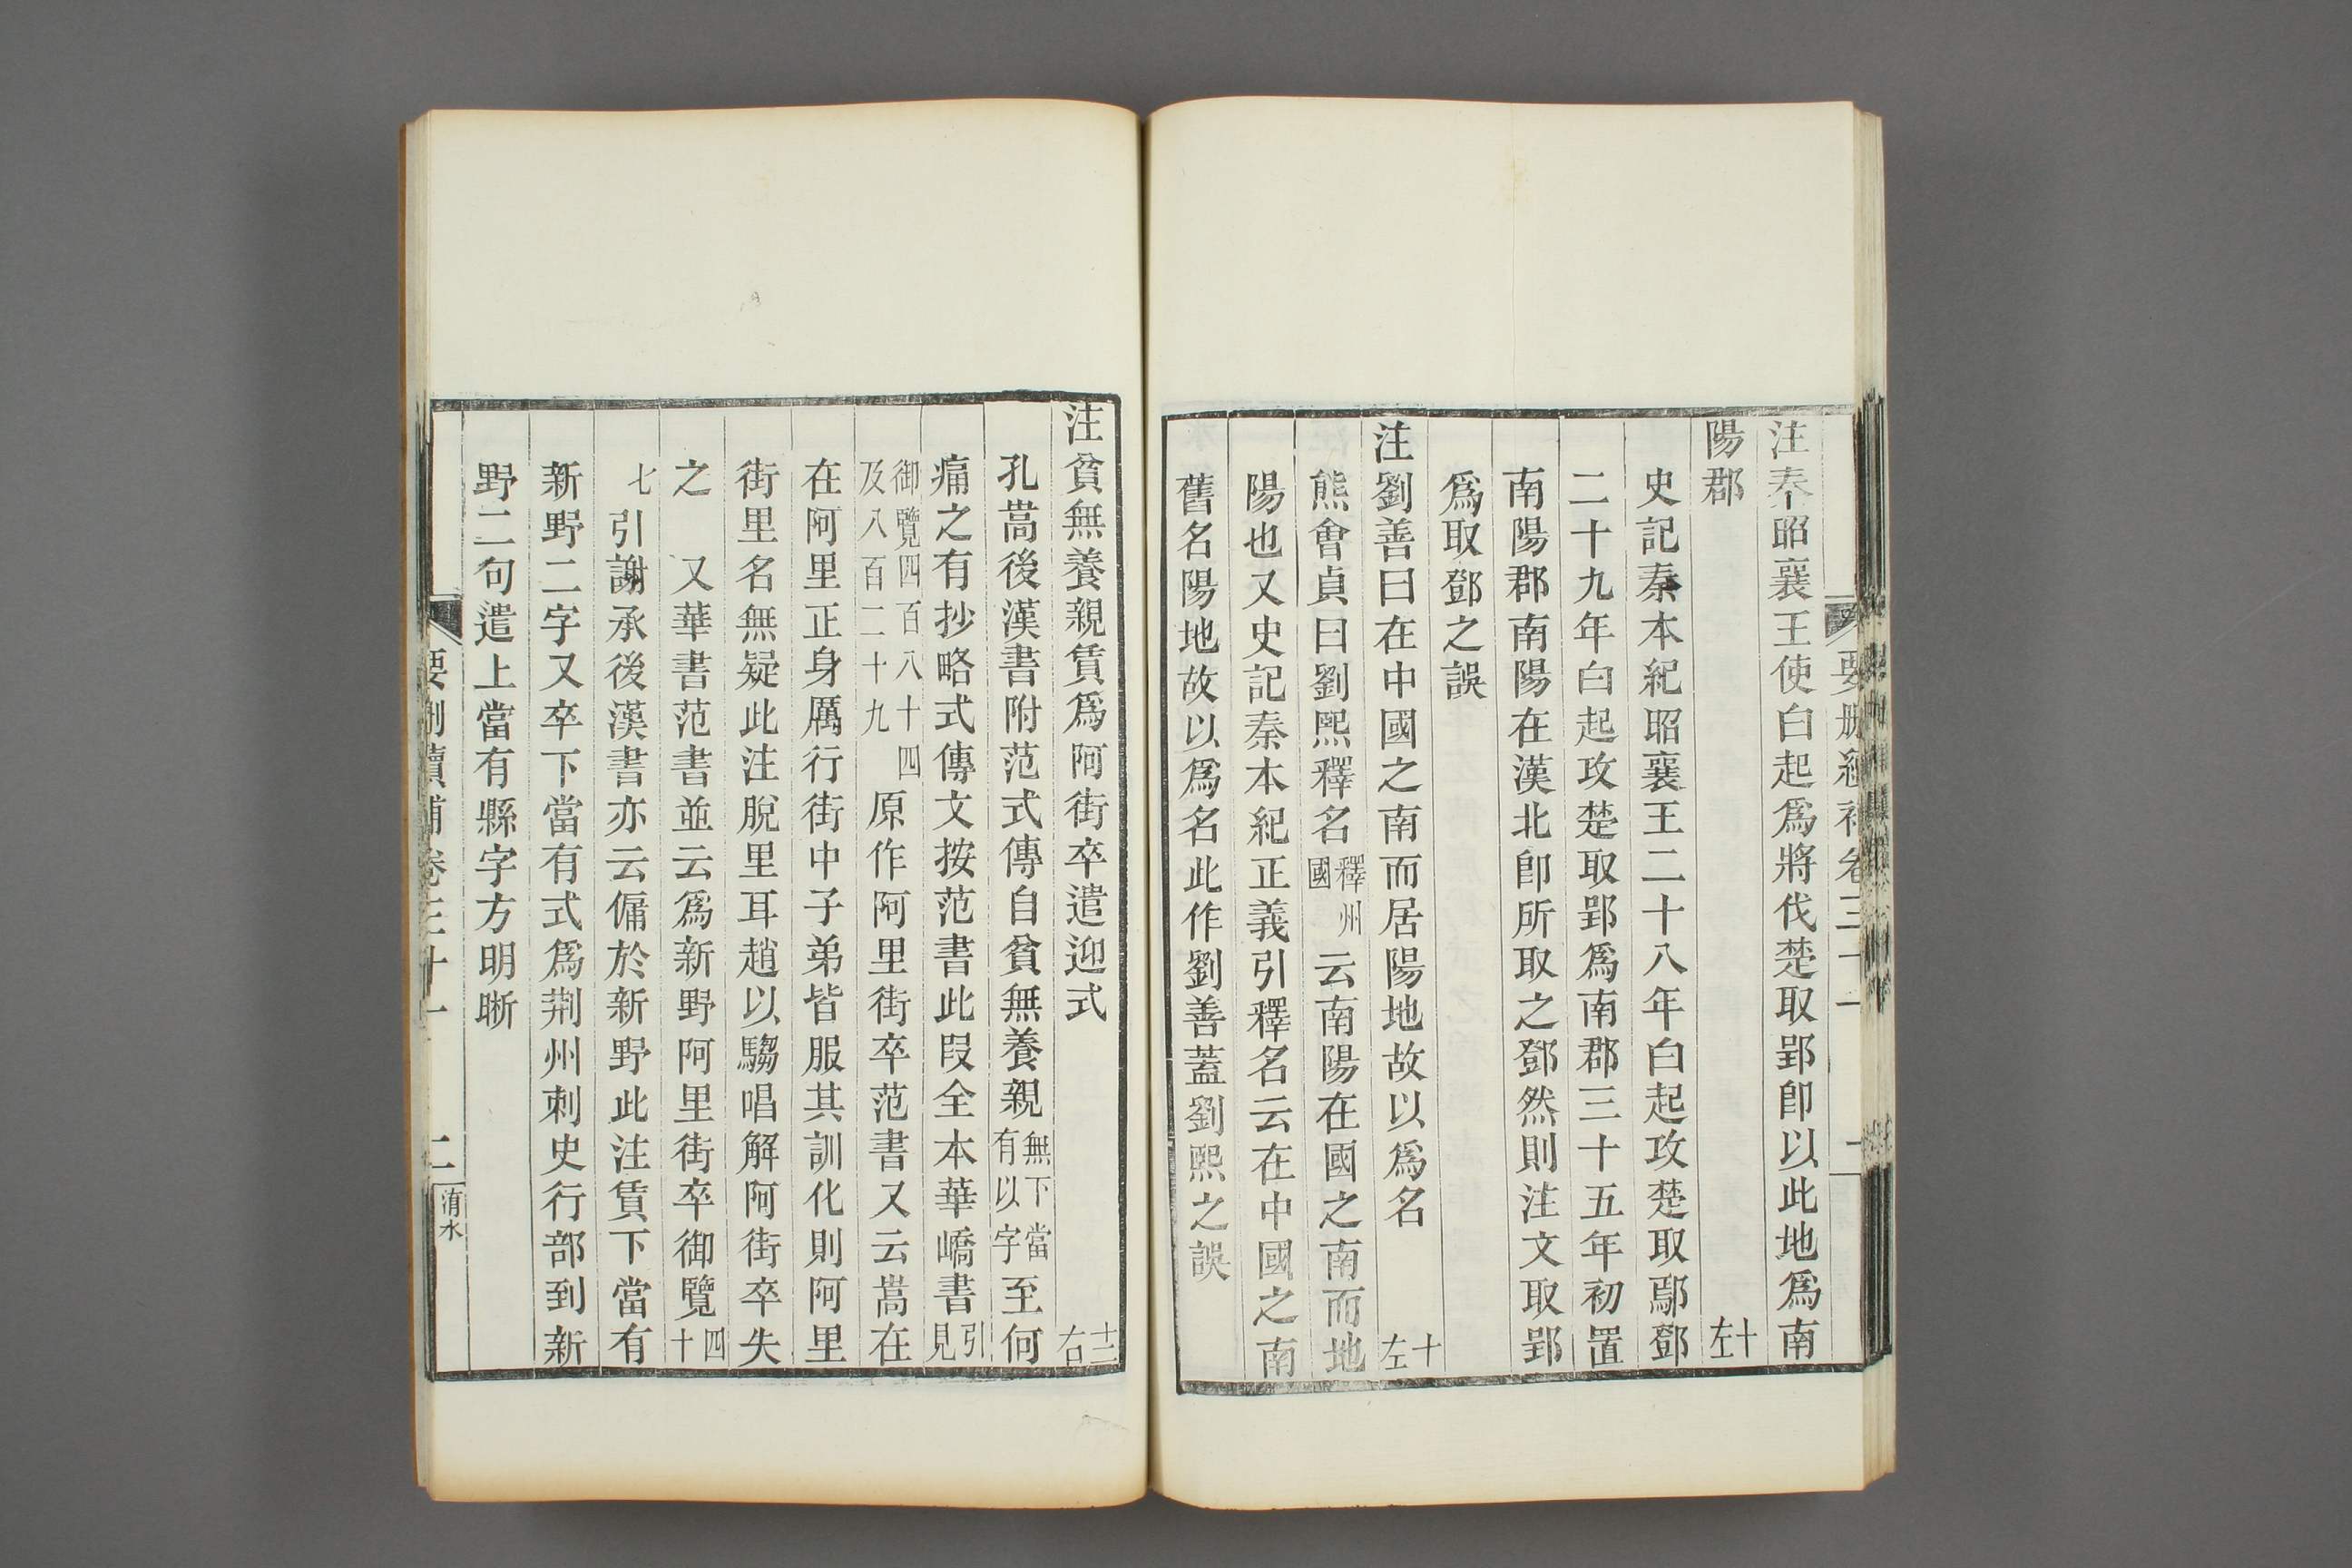 注秦昭襄王使白起爲將伐楚取郢卽以此地爲南
陽郡 十左
史記秦本紀昭襄王二十八年白起攻楚取鄢鄧
二十九年白起攻楚取郢爲南郡三十五年初置
南陽郡南陽在漢北卽所取之鄧然則注文取郢
爲取鄧之誤
注劉善曰在中國之南而居陽地故以爲名 十左
熊會貞曰劉熙釋名釋州國云南陽在國之南而地
陽也又史記秦本紀正義引釋名云在中國之南
舊名陽地故以爲名此作劉善蓋劉熙之誤
注貧無養親賃爲阿街卒遣迎式 十三右
孔嵩後漢書附范式傳自貧無養親無下當有以字至何
痛之有抄略式傳文按范書此段全本華嶠書引見
御覽四百八十四及八百二十九原作阿里街卒范書又云嵩在
在阿里正身厲行街中子弟皆服其訓化則阿里
街里名無疑此注脫里耳趙以騶唱解阿街卒失
之 又華書范書並云爲新野阿里街卒御覽四十
七引謝承後漢書亦云傭於新野此注賃下當有
新野二字又卒下當有式爲荆州刺史行部到新
野二句遣上當有縣字方明晰
要刪續補卷三十一 二 淯水